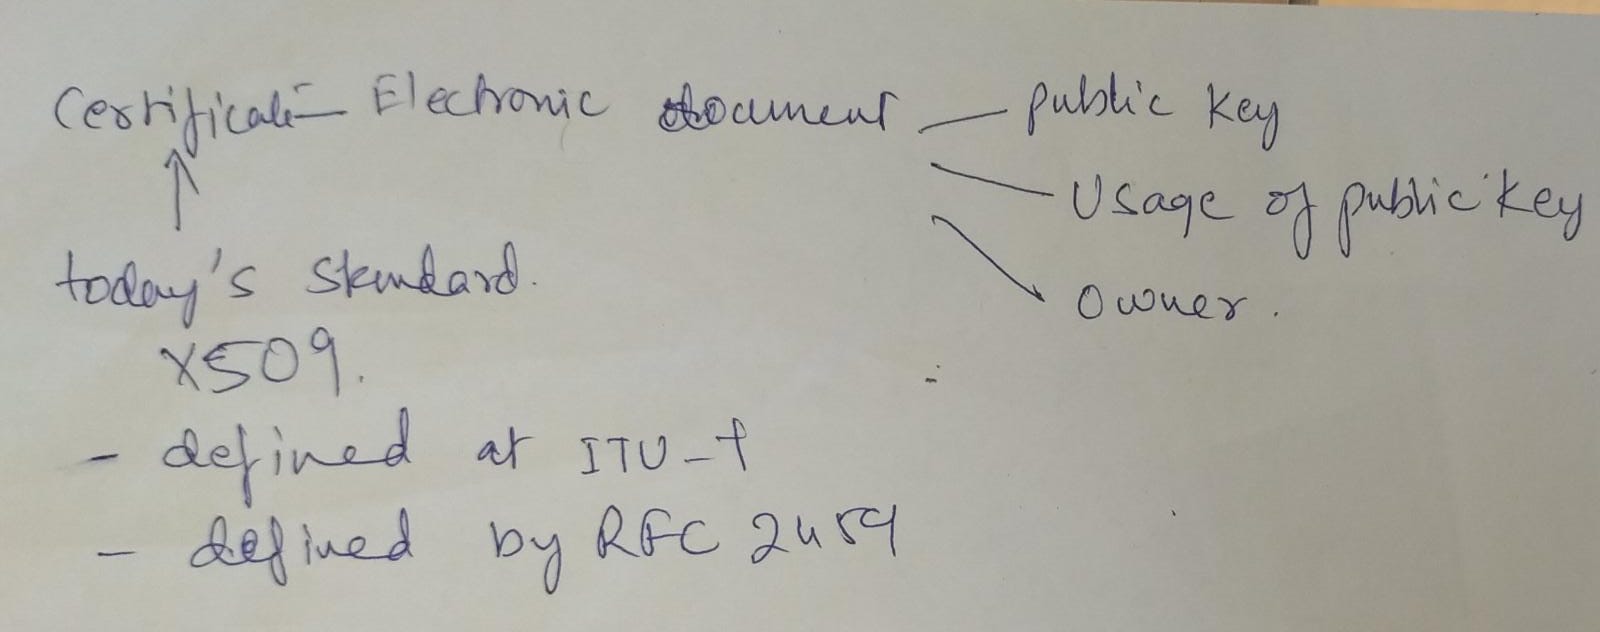 Certificate - Electronic document - public key
- Usage of public key
Owner.
today's standard.
X509.
- defined at ITU-T
- defined by RFC 2459